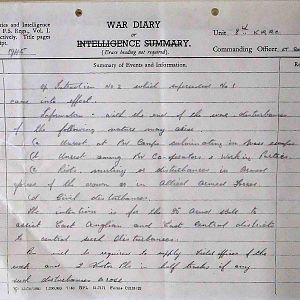 WAR DIARY
or
INTELLIGENCE SUMMARY.
(Erase heading not required).
and Intelligence
P.S. Regs., Vol. I.
ectively. Title pages
ript.
Unit 8th KRRC
Commanding Officer
Summary of Events and Information.
of Instruction No 2 which superseded No 1
came into effect.
Information :- with the end of the war disturbances
of the following nature may arise.
(a) Unrest at PW Camps culminating in Mass escapes
(b) Unrest among PW Co-operators & Working Parties.
(c) Riots, mutiny or disturbances in armed
forces of the crown or in Allied Armed Forces.
(d) Civil disturbances.
The intention is for the Armd to
assist East Anglian and East Central districts
to control such Disturbances.
Bn will be required to supply
and 2 Motor Pls in half tracks if any
such disturbances arose